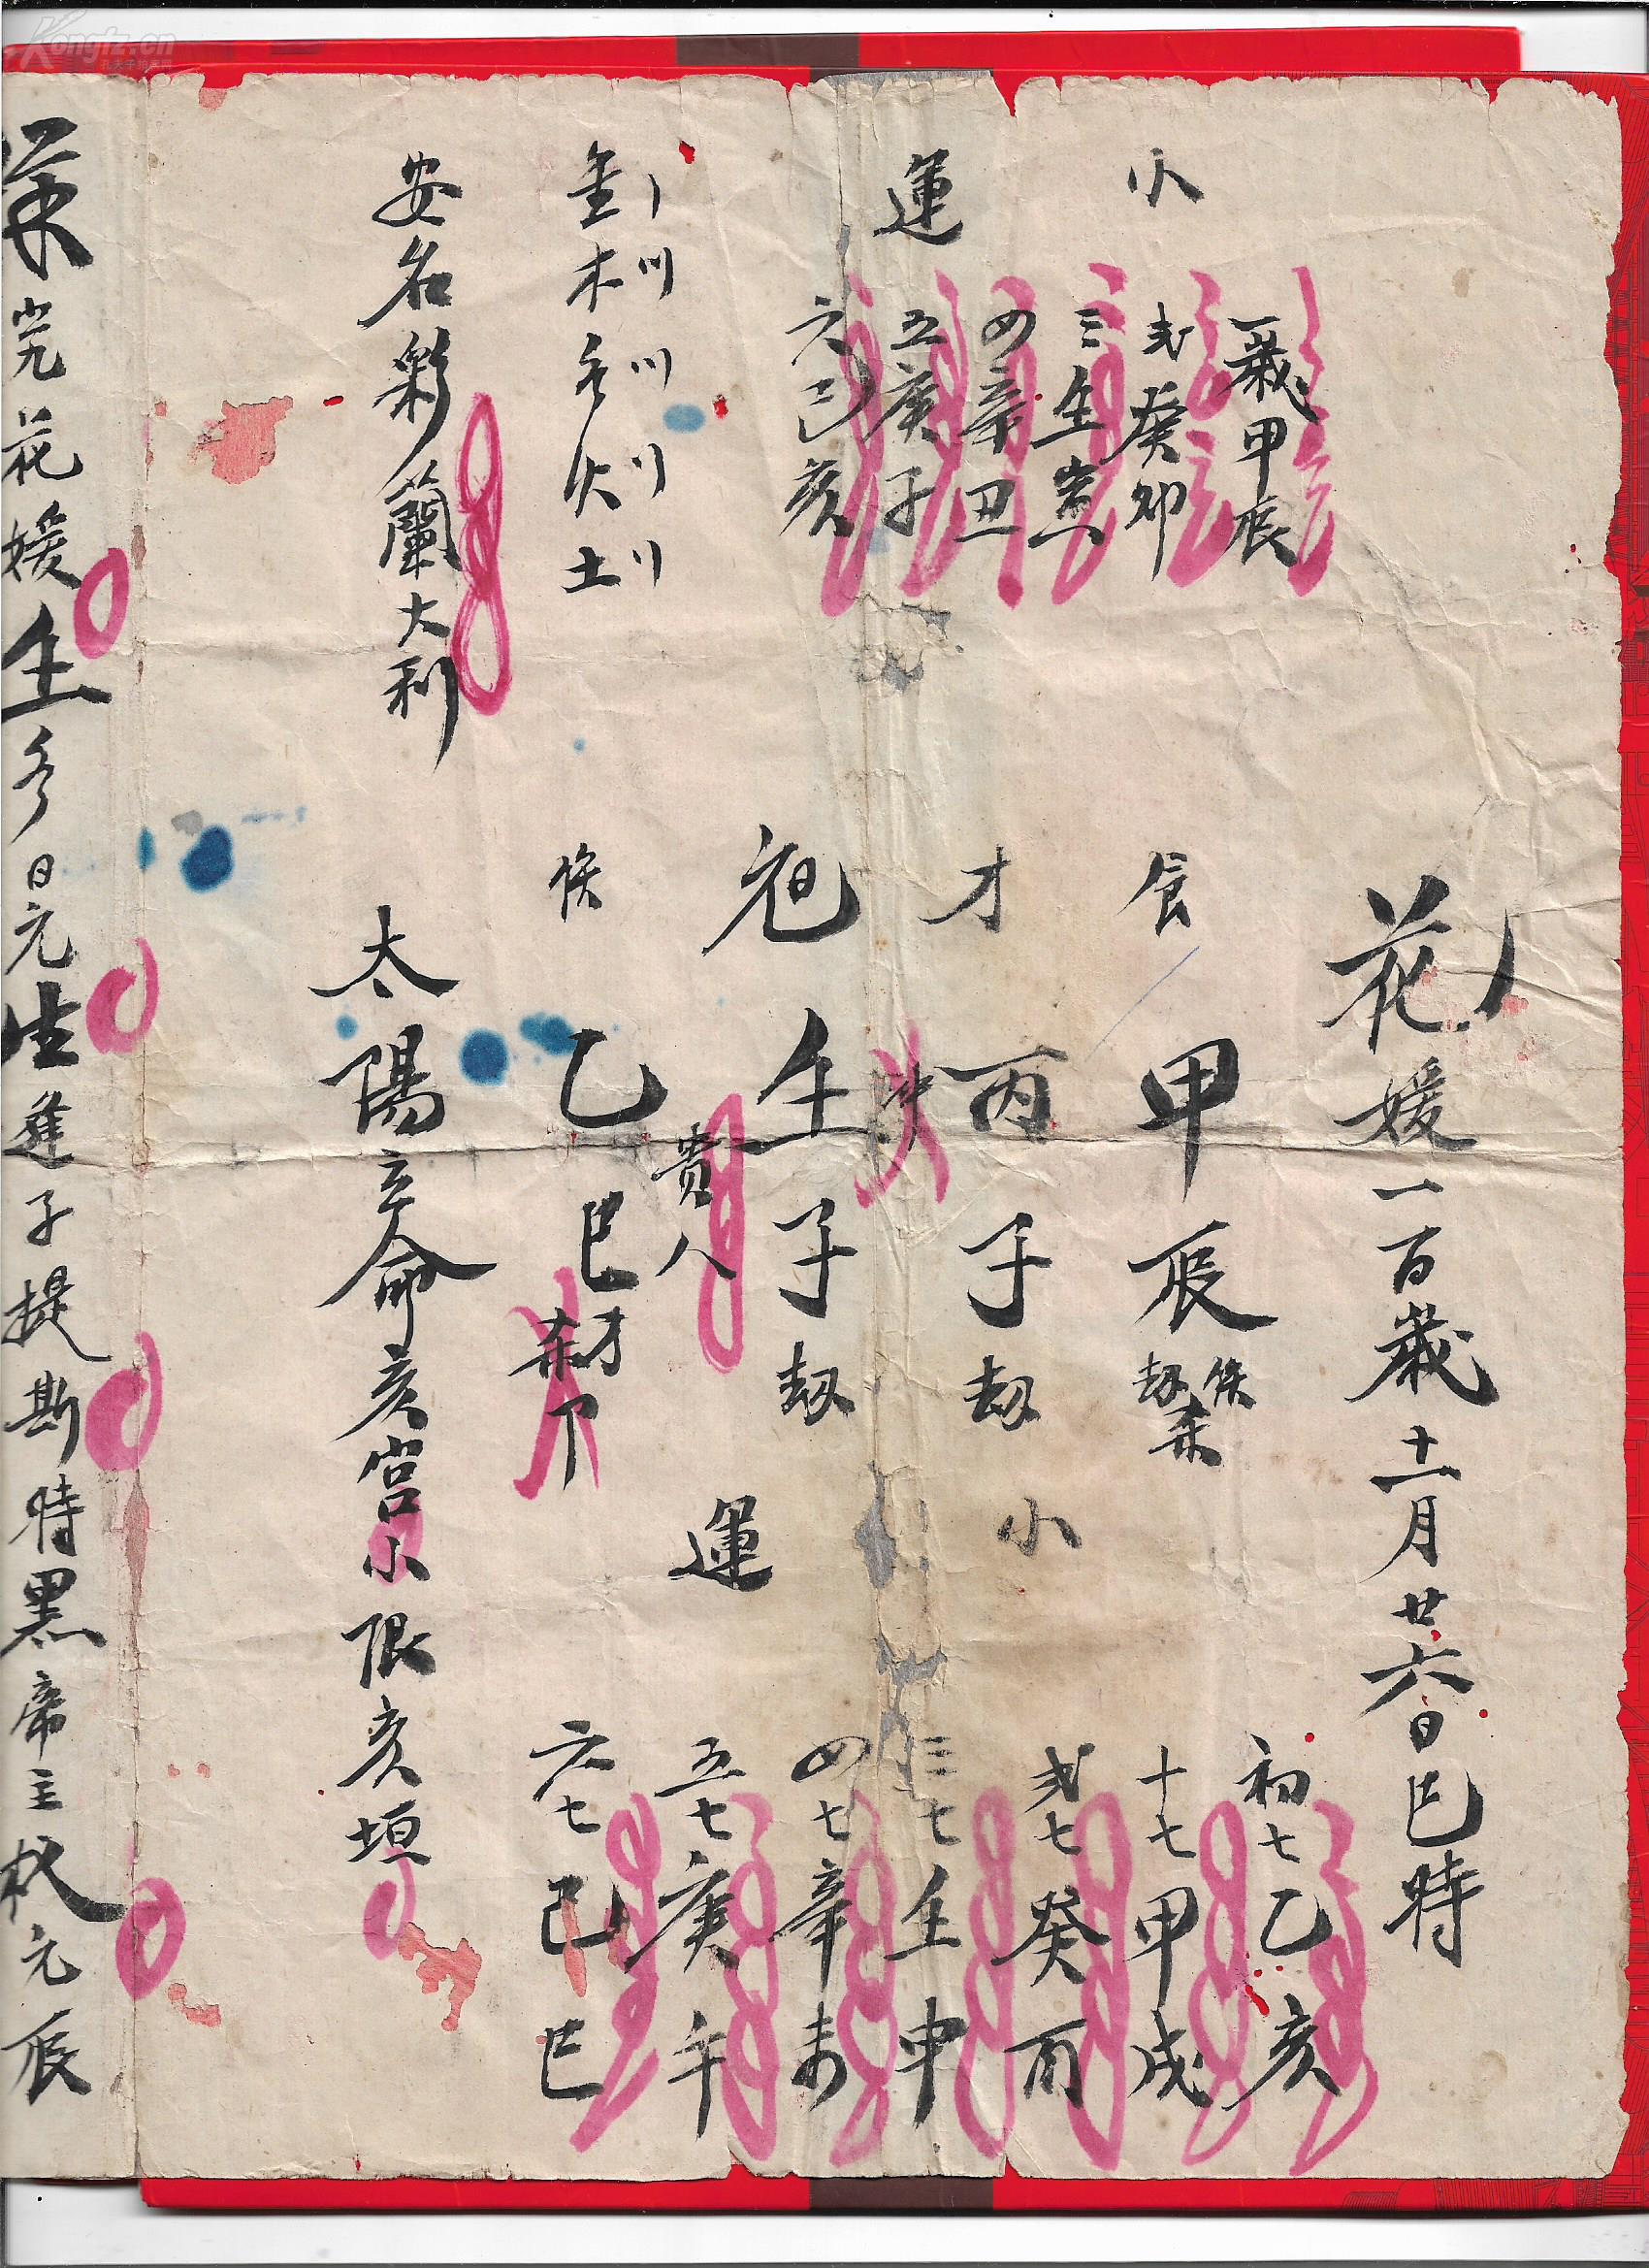 花媛一百歲十一月廿六日巳時
小
運
一歲甲辰
弍癸卯
三壬寅
四辛丑
五庚子
六己亥
食 甲辰 劫 杀
才 丙子劫
冲
壬子劫
貴人
乙巳才杀
小
運
初七乙亥
十七甲戌
弍七癸酉
三七壬申
四七辛未
五七庚午
六七己巳
金木水火土
安名彩蘭大利
太陽立命亥宮小限亥垣
花媛壬水日元生逢子提斯時黑帝主权元辰
Kongfz.cn